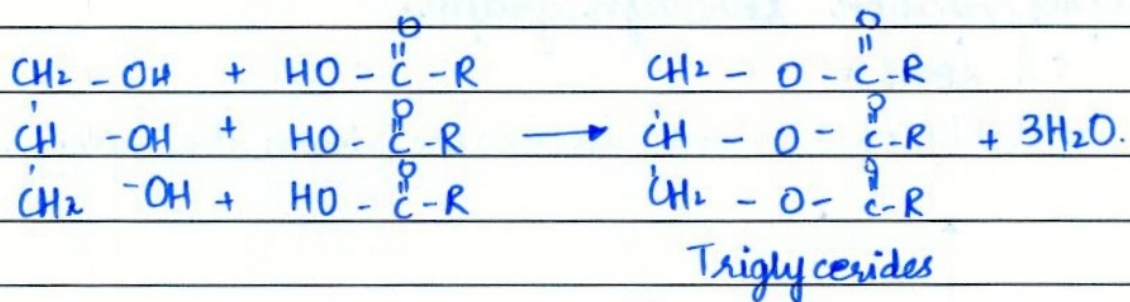 O O
CH₂ - OH + HO - C - R CH₂ - O - C - R
CH - OH + HO - C - R → CH - O - C - R + 3H₂O.
CH₂ - OH + HO - C - R CH₂ - O - C - R
Triglycerides